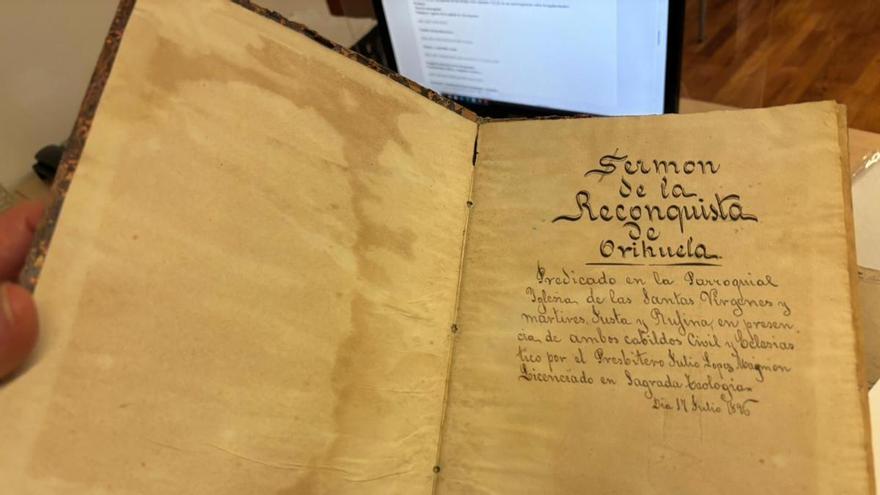 Sermon
de la
Reconquista
de
Orihuela.
Predicado en la Parroquial
Yglesia de las Santas Vírgenes y
mártires, Justa y Rufina, en presen-
cia de ambos cabildos Civil y Eclesiás
tico por el Presbitero Julio Lopez Maymon
Licenciado en Sagrada Teologia.
Dia 17 Julio 1896